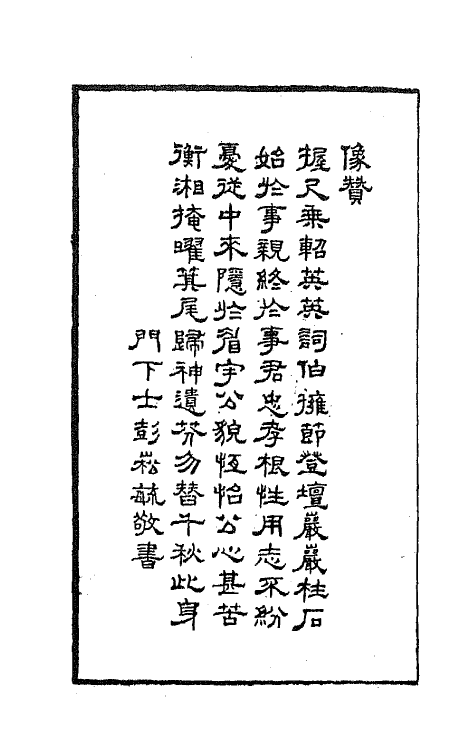 像贊
握尺乗軺英英詞伯擁節登壇巖巖柱石
始於事親終於事君忠孝根性用志不紛
憂從中來隱於眉宇公貌恆怡公心甚苦
衡湘掩曜箕尾歸神遺芬勿替千秋此身
門下士彭崧毓敬書